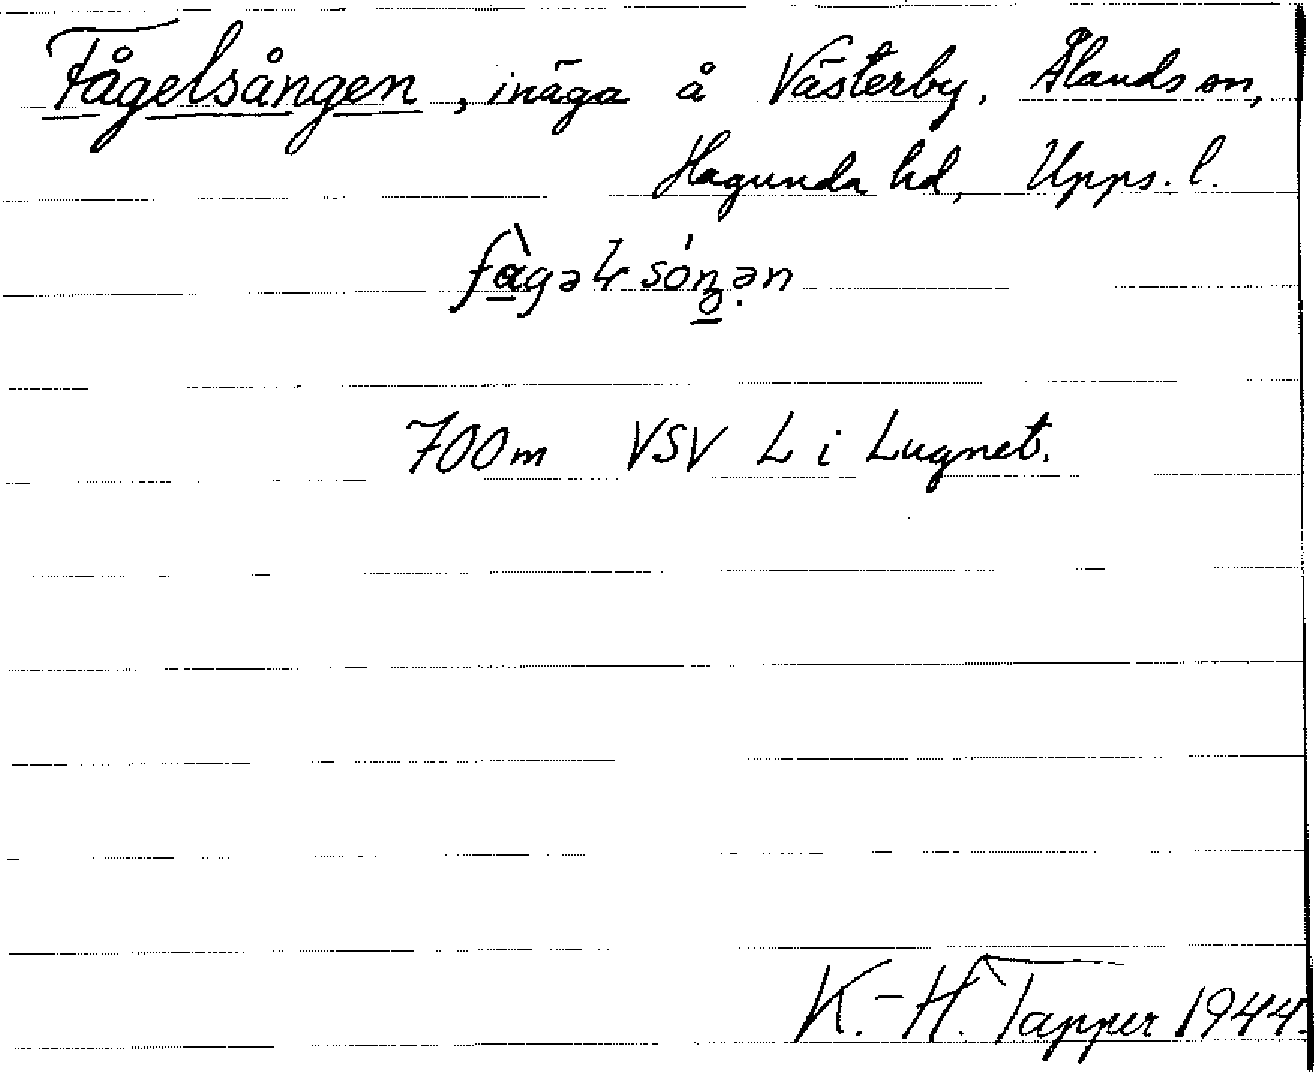 Fågelsången, inäga å Västerby, Ålands sn,
Hagunda hd, Upps. l.
700m VSV L i Lugnet.
K.-H. Tapper 1944.